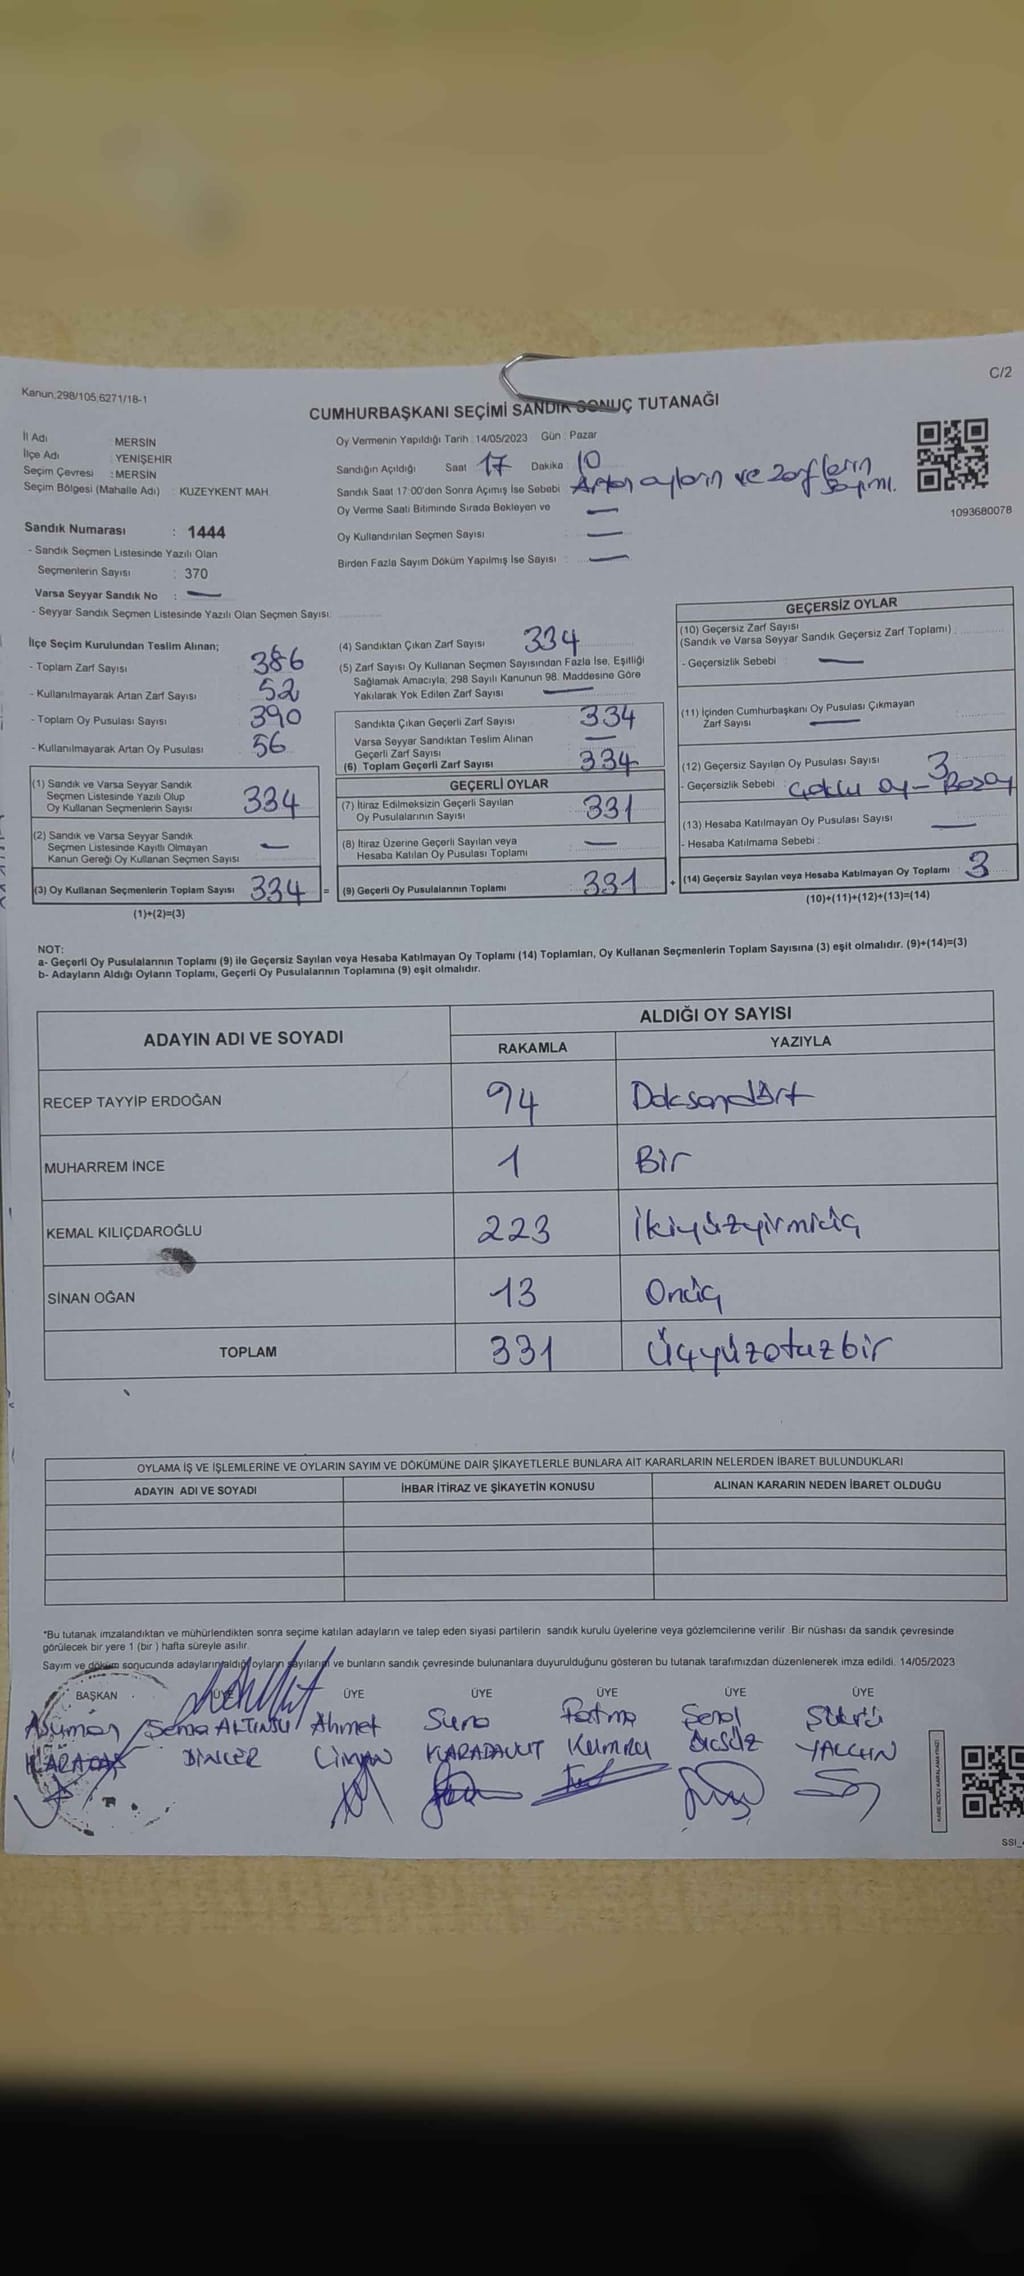 C/2
Kanun.298/105,6271/18-1
CUMHURBAŞKANI SEÇİMİ SANDIK SONUÇ TUTANAĞI
İl Adı : MERSİN
İlçe Adı : YENİŞEHİR
Seçim Çevresi : MERSİN
Seçim Bölgesi (Mahalle Adı) : KUZEYKENT MAH.
Oy Vermenin Yapıldığı Tarih : 14/05/2023 Gün : Pazar
Sandığın Açıldığı Saat 17 Dakika 10
Sandık Saat 17:00'den Sonra Açımış İse Sebebi Artan oyların ve zarfların sayımı.
Oy Verme Saati Bitiminde Sırada Bekleyen ve
Oy Kullandırılan Seçmen Sayısı : —
Birden Fazla Sayım Döküm Yapılmış İse Sayısı : —
1093680078
Sandık Numarası : 1444
- Sandık Seçmen Listesinde Yazılı Olan
Seçmenlerin Sayısı : 370
Varsa Seyyar Sandık No : —
- Seyyar Sandık Seçmen Listesinde Yazılı Olan Seçmen Sayısı:
İlçe Seçim Kurulundan Teslim Alınan;
- Toplam Zarf Sayısı 386
- Kullanılmayarak Artan Zarf Sayısı 52
- Toplam Oy Pusulası Sayısı 390
- Kullanılmayarak Artan Oy Pusulası 56
(1) Sandık ve Varsa Seyyar Sandık
Seçmen Listesinde Yazılı Olup
Oy Kullanan Seçmenlerin Sayısı 334
(2) Sandık ve Varsa Seyyar Sandık
Seçmen Listesinde Kayıtlı Olmayan
Kanun Gereği Oy Kullanan Seçmen Sayısı —
(3) Oy Kullanan Seçmenlerin Toplam Sayısı 334 =
(1)+(2)=(3)
(4) Sandıktan Çıkan Zarf Sayısı 334
(5) Zarf Sayısı Oy Kullanan Seçmen Sayısından Fazla İse, Eşitliği
Sağlamak Amacıyla, 298 Sayılı Kanunun 98. Maddesine Göre
Yakılarak Yok Edilen Zarf Sayısı —
Sandıkta Çıkan Geçerli Zarf Sayısı 334
Varsa Seyyar Sandıktan Teslim Alınan
Geçerli Zarf Sayısı —
(6) Toplam Geçerli Zarf Sayısı 334
GEÇERLİ OYLAR
(7) İtiraz Edilmeksizin Geçerli Sayılan
Oy Pusulalarının Sayısı 331
(8) İtiraz Üzerine Geçerli Sayılan veya
Hesaba Katılan Oy Pusulası Toplamı —
(9) Geçerli Oy Pusulalarının Toplamı 331 +
GEÇERSİZ OYLAR
(10) Geçersiz Zarf Sayısı
(Sandık ve Varsa Seyyar Sandık Geçersiz Zarf Toplamı)
- Geçersizlik Sebebi : —
(11) İçinden Cumhurbaşkanı Oy Pusulası Çıkmayan
Zarf Sayısı —
(12) Geçersiz Sayılan Oy Pusulası Sayısı 3
- Geçersizlik Sebebi Çoklu oy - Boş oy
(13) Hesaba Katılmayan Oy Pusulası Sayısı —
- Hesaba Katılmama Sebebi :
(14) Geçersiz Sayılan veya Hesaba Katılmayan Oy Toplamı 3
(10)+(11)+(12)+(13)=(14)
NOT:
a- Geçerli Oy Pusulalarının Toplamı (9) ile Geçersiz Sayılan veya Hesaba Katılmayan Oy Toplamı (14) Toplamları, Oy Kullanan Seçmenlerin Toplam Sayısına (3) eşit olmalıdır. (9)+(14)=(3)
b- Adayların Aldığı Oyların Toplamı, Geçerli Oy Pusulalarının Toplamına (9) eşit olmalıdır.
ADAYIN ADI VE SOYADI ALDIĞI OY SAYISI
RAKAMLA YAZIYLA
RECEP TAYYİP ERDOĞAN 94 Doksandört
MUHARREM İNCE 1 Bir
KEMAL KILIÇDAROĞLU 223 İkiyüzyirmiüç
SİNAN OĞAN 13 Onüç
TOPLAM 331 Üçyüzotuzbir
OYLAMA İŞ VE İŞLEMLERİNE VE OYLARIN SAYIM VE DÖKÜMÜNE DAİR ŞİKAYETLERLE BUNLARA AİT KARARLARIN NELERDEN İBARET BULUNDUKLARI
ADAYIN ADI VE SOYADI İHBAR İTİRAZ VE ŞİKAYETİN KONUSU ALINAN KARARIN NEDEN İBARET OLDUĞU
*Bu tutanak imzalandıktan ve mühürlendikten sonra seçime katılan adayların ve talep eden siyasi partilerin sandık kurulu üyelerine veya gözlemcilerine verilir. Bir nüshası da sandık çevresinde
görülecek bir yere 1 (bir) hafta süreyle asılır.
Sayım ve döküm sonucunda adayların aldığı oyların sayılarını ve bunların sandık çevresinde bulunanlara duyurulduğunu gösteren bu tutanak tarafımızdan düzenlenerek imza edildi. 14/05/2023
BAŞKAN ÜYE ÜYE ÜYE ÜYE ÜYE ÜYE
Asuman Sema ALTINSU Ahmet Suna Fatma Şenol Şükrü
KARATAŞ DİNÇER Liman KARADAVUT Kumru YALÇIN
KARE KODU KARALAMAYINIZ
SSI_